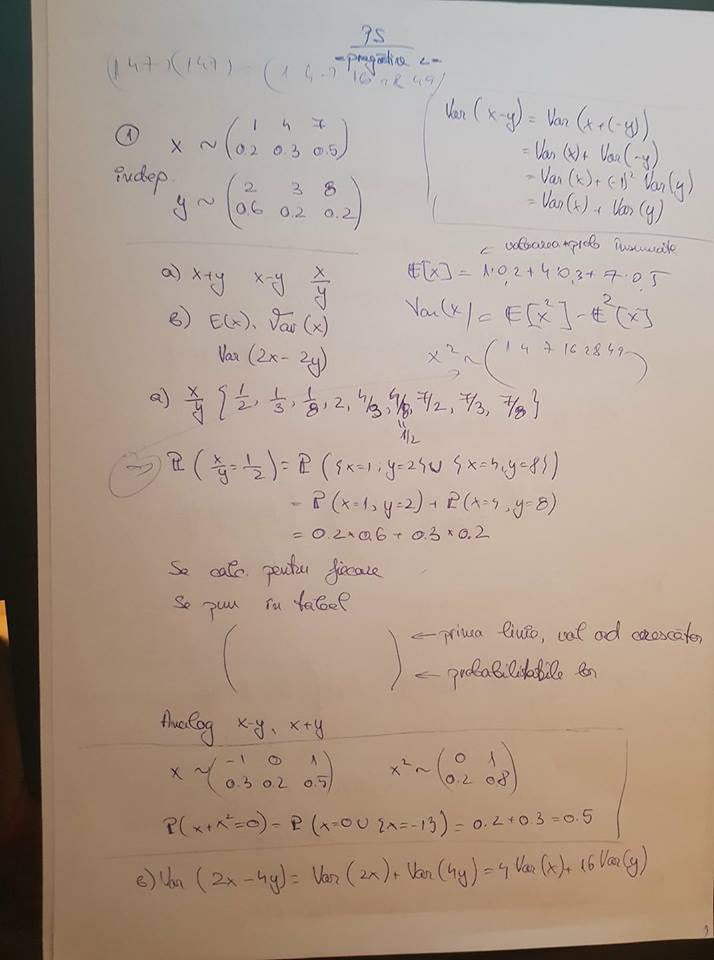 PS
(1 4 7)(1 4 7) - (1 4 7 16 28 49)
① X ~ (1 4 7
0.2 0.3 0.5)
indep.
y ~ (2 3 8
0.6 0.2 0.2)
Var(x-y) = Var(x+(-y))
= Var(x) + Var(-y)
= Var(x) + (-1)² Var(y)
= Var(x) + Var(y)
a) x+y x-y x/y
b) E(x), Var(x)
Var(2x-2y)
← valoarea*prob însumate
E[x] = 1·0,2+4·0,3+7·0.5
Var(x) = E[x²] - E²[x]
x² ~ (1 4 7 16 28 49)
a) x/y {1/2, 1/3, 1/8, 2, 4/3, 4/8, 7/2, 7/3, 7/8}
"
1/2
→ P(x/y = 1/2) = P({x=1, y=2} ∪ {x=4, y=8})
= P(x=1, y=2) + P(x=4, y=8)
= 0.2*0.6 + 0.3*0.2
Se calc. pentru fiecare
Se pun în tabel
( ) ← prima linie, val ord crescător
← probabilitatile lor
Analog x-y, x+y
x ~ (-1 0 1
0.3 0.2 0.5)
x² ~ (0 1
0.2 0.8)
P(x+x²=0) = P(x=0 ∪ {x=-1}) = 0.2+0.3 = 0.5
b) Var(2x-4y) = Var(2x) + Var(4y) = 4 Var(x) + 16 Var(y)